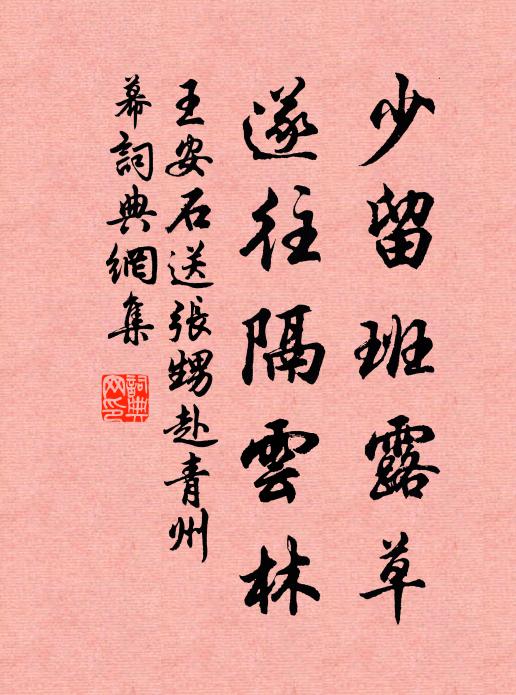 少留班露草
遂往隔雲林
王安石送張甥赴青州
幕詞典網集
詞典網印